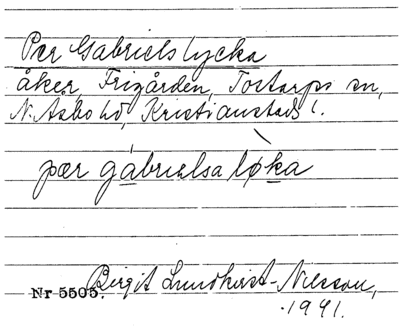 Per Gabriels lycka
åker, Frigården, Tostarps sn,
N. Åsbo hd, Kristianstads l.
pær gábriəlsa lø̀ka
Nr 5505. Birgit Lundkvist-Nilsson,
1941.